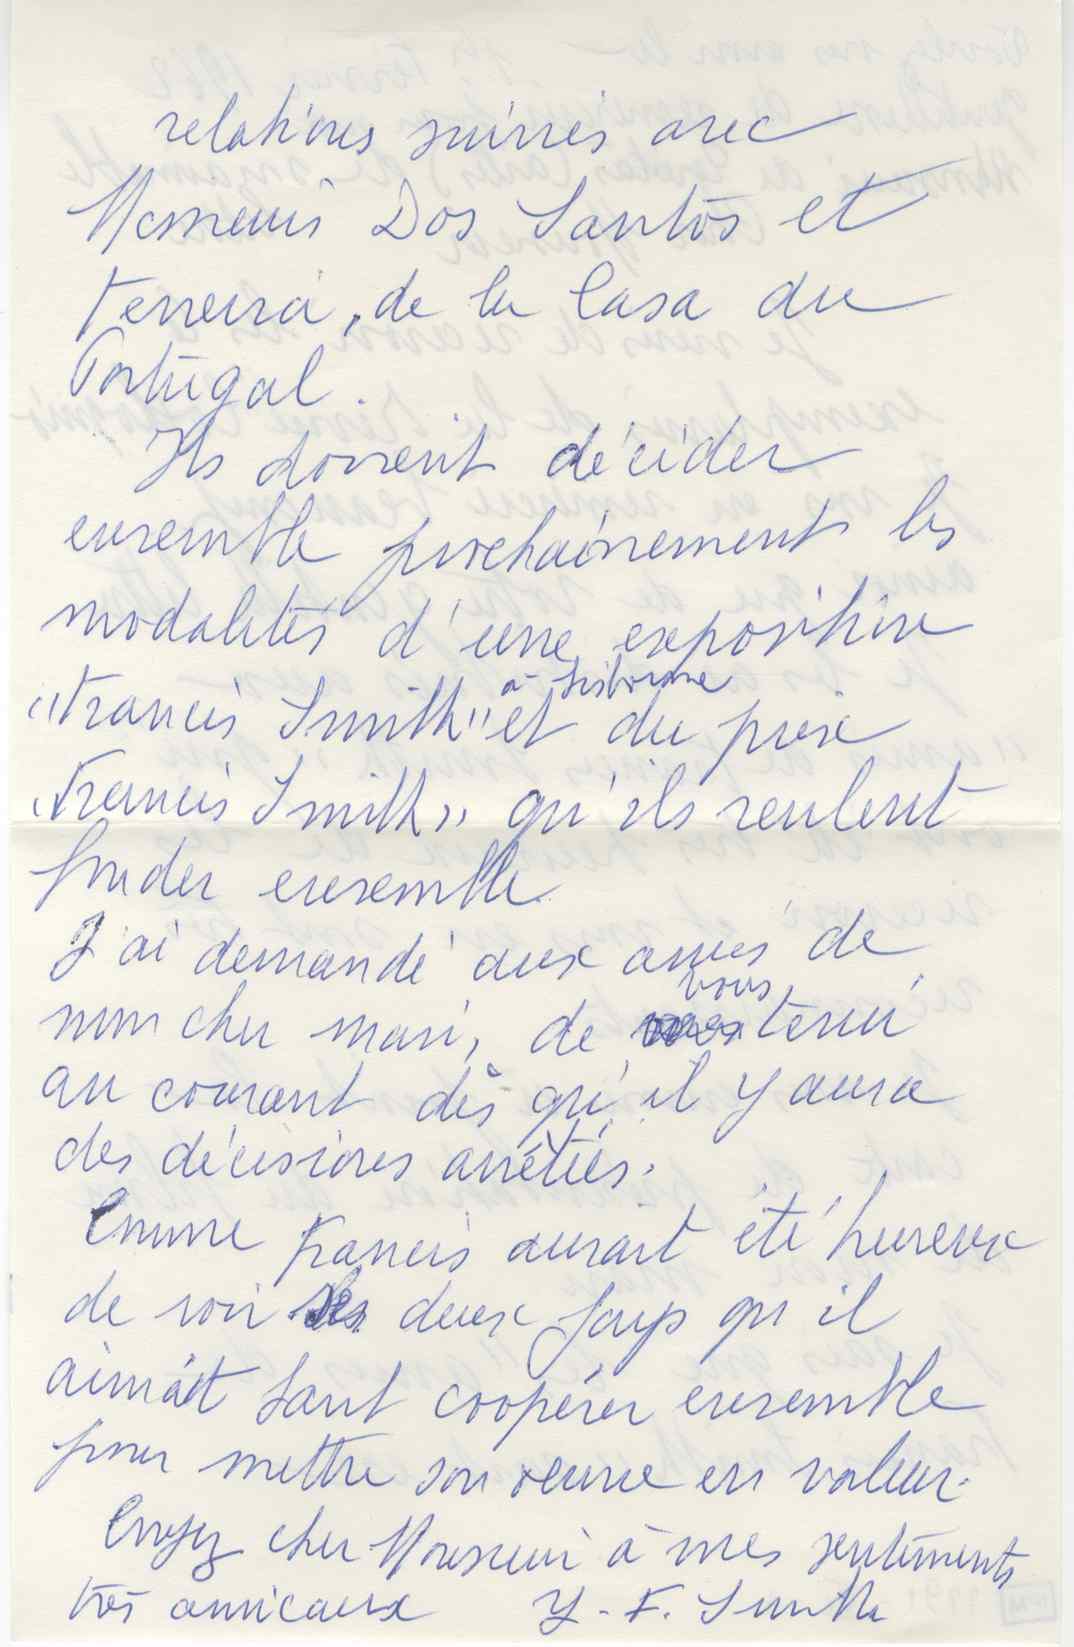 relations suivies avec
Messieurs Dos Santos et
Ferreira, de la Casa du
Portugal.
Ils doivent décider
ensemble prochainement les
modalités d'une exposition
"Francis Smith" à Lisbonne et du prix
"Francis Smith" qu'ils veulent
fonder ensemble.
J'ai demandé aux amis de
mon cher mari, de vous tenir
au courant dès qu'il y aura
des décisions arrêtées.
Comme Francis aurait été heureux
de voir les deux pays qu'il
aimait tant coopérer ensemble
pour mettre son œuvre en valeur.
Croyez cher Monsieur à mes sentiments
très amicaux Y. F. Smith